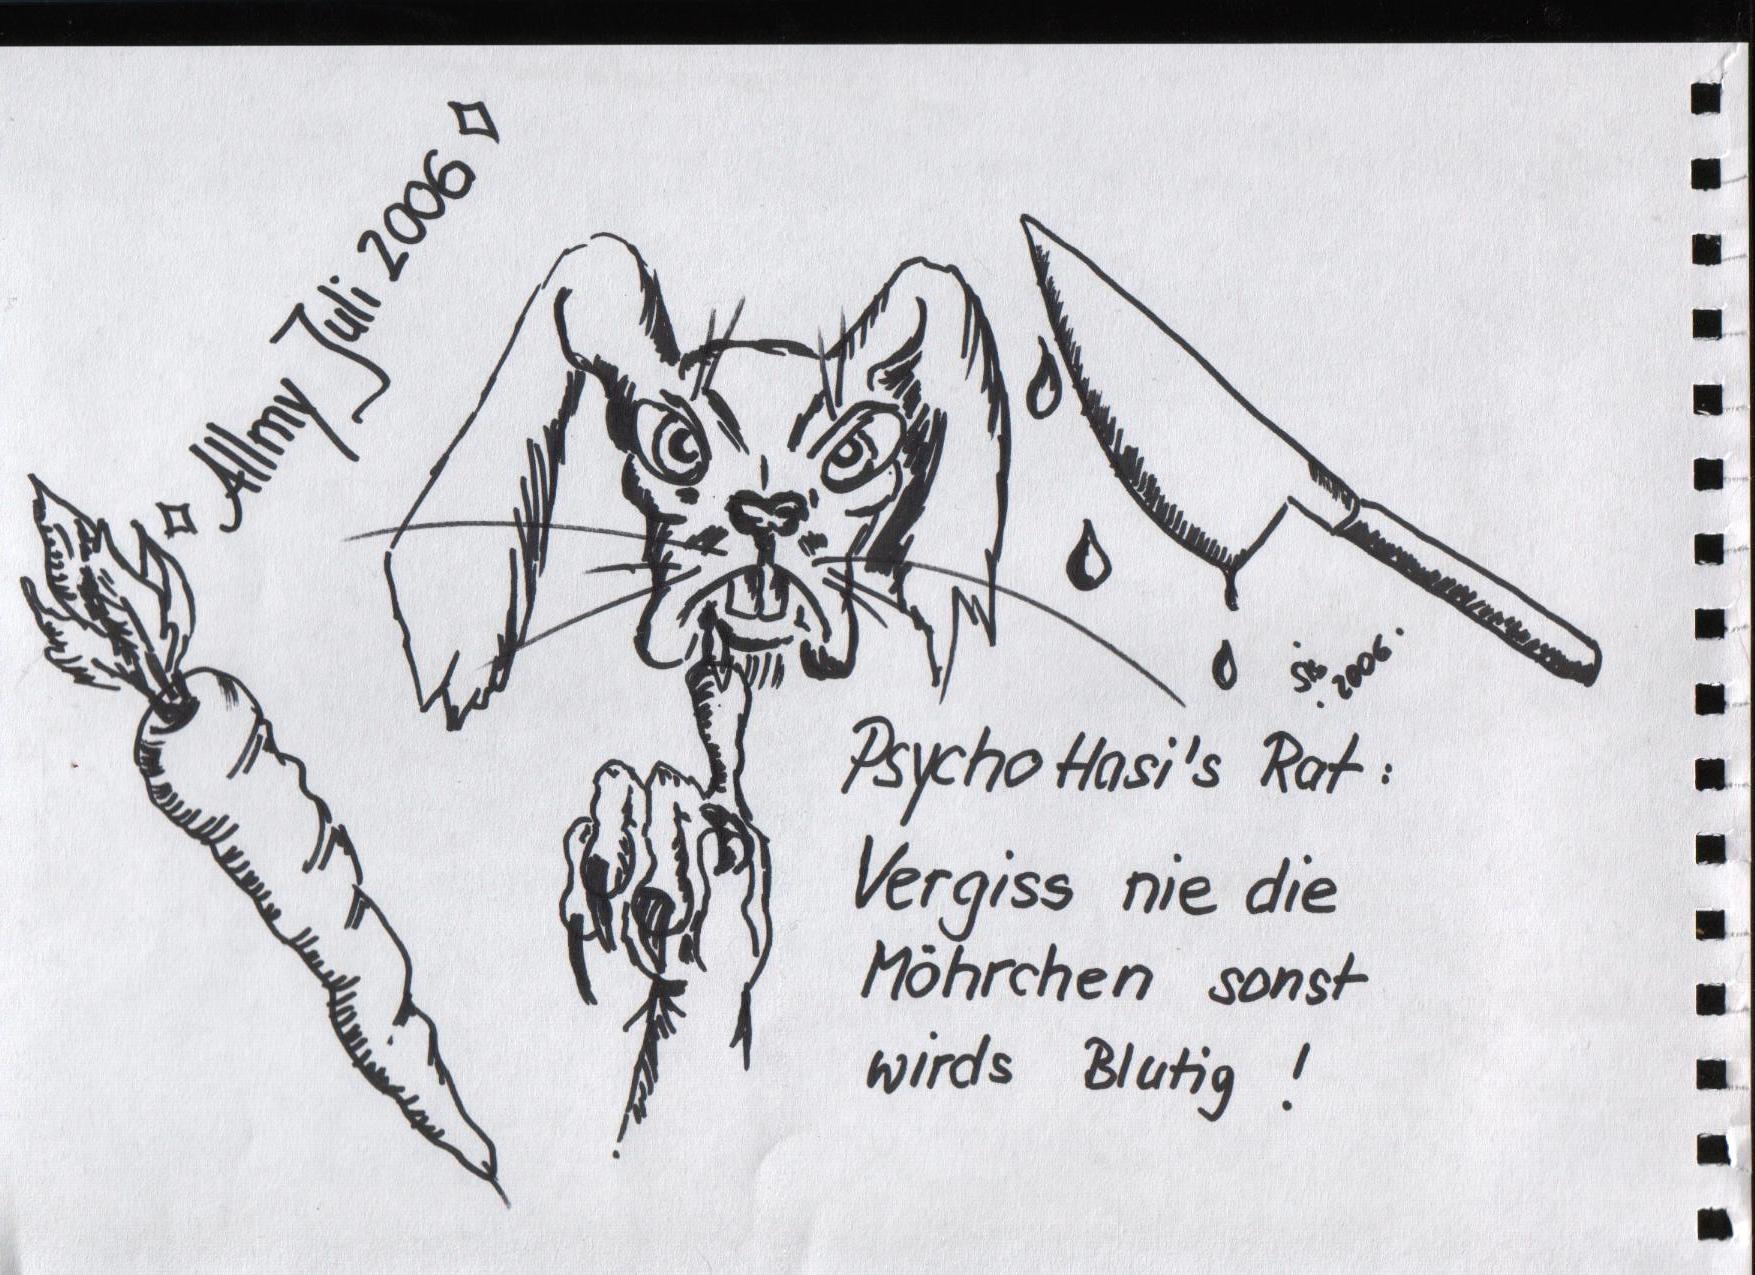 Allmy Juli 2006
2006
Psycho Hasi's Rat:
Vergiss nie die
Möhrchen sonst
wirds Blutig!